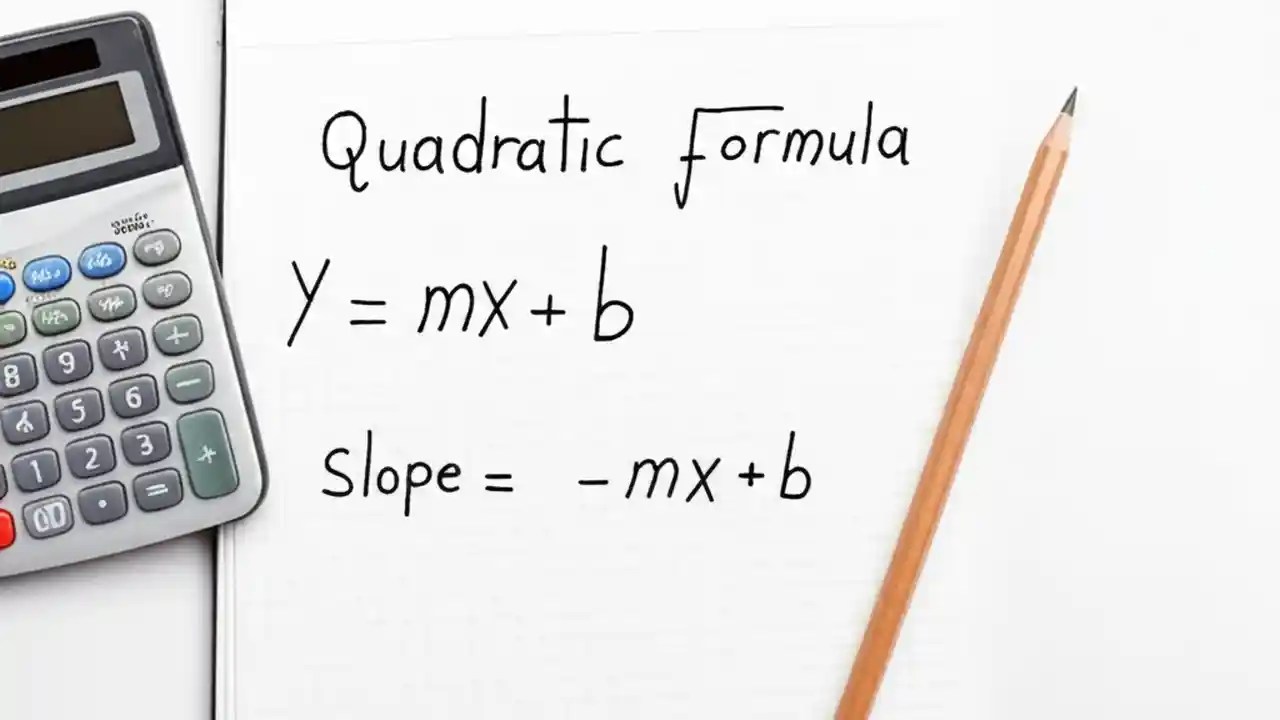 Quadratic formula
y = mx + b
Slope = - mx + b
8 9
5 6
1 2 3
00 . =